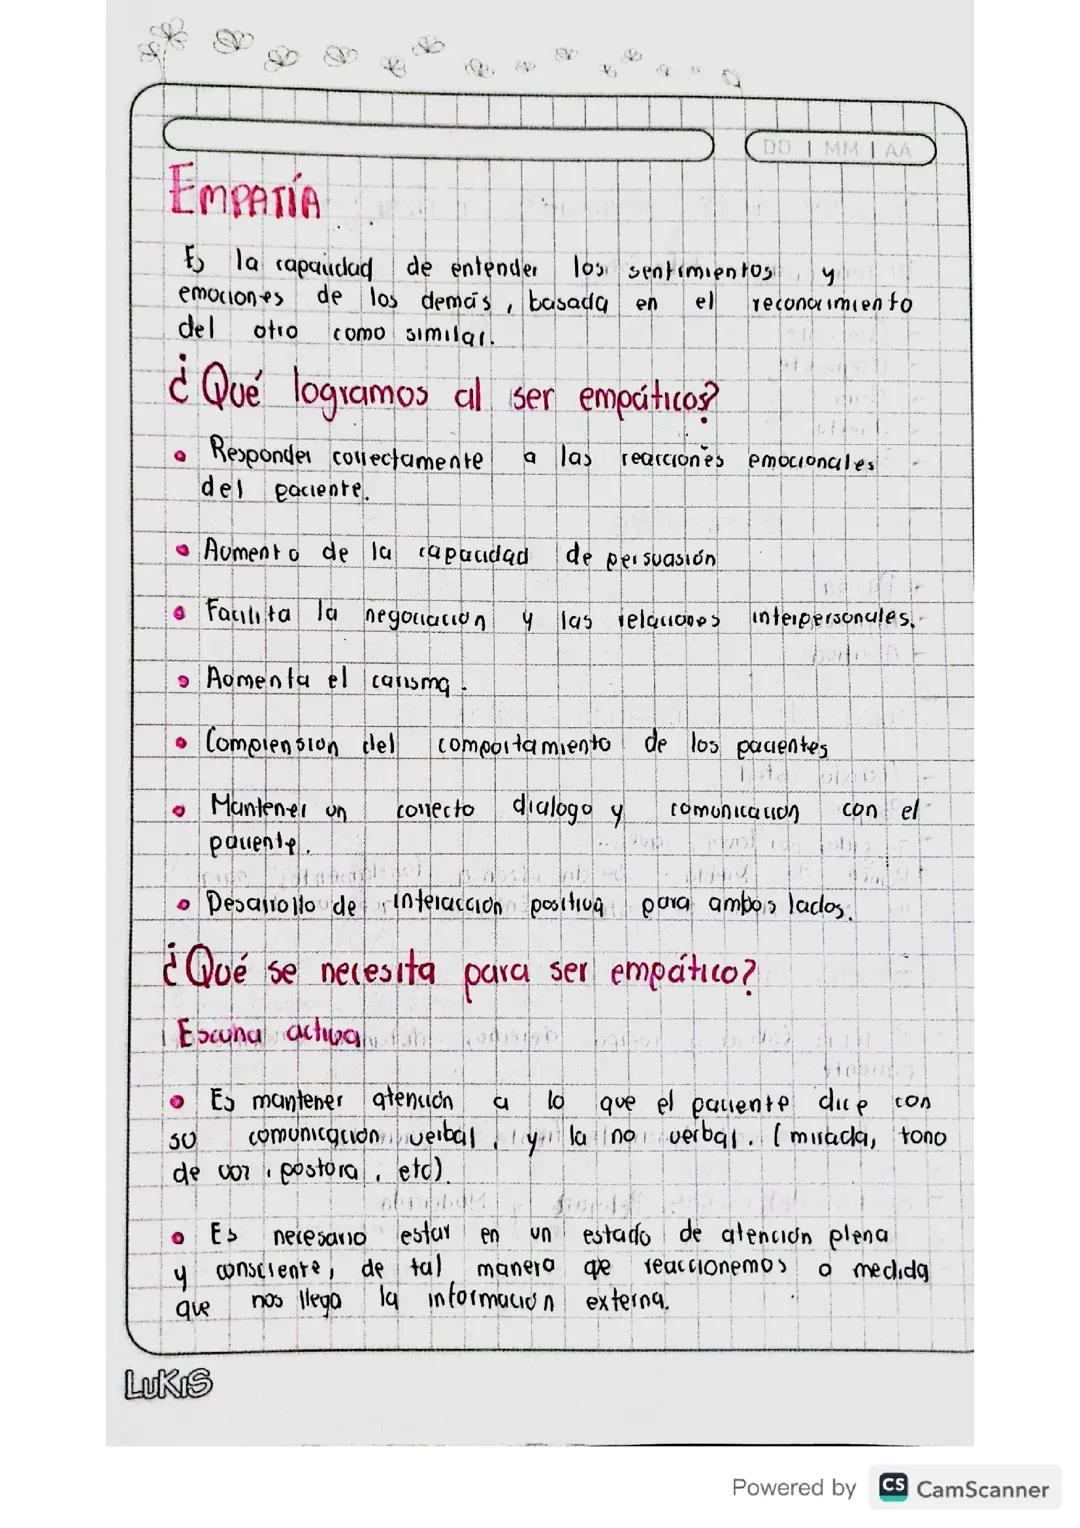 DD | MM | AA
EMPATÍA
Es la capacidad de entender los sentimientos y
emociones de los demás, basada en el reconocimiento
del otro como similar.
¿Qué logramos al ser empáticos?
• Responder correctamente a las reacciones emocionales
del paciente.
• Aumento de la capacidad de persuasión
• Facilita la negociación y las relaciones interpersonales.
• Aumenta el carisma.
• Comprension del comportamiento de los pacientes
• Mantener un correcto dialogo y comunicación con el
paciente.
• Desarrollo de interacción positiva para ambos lados.
¿Qué se necesita para ser empático?
Escucha activa
• Es mantener atención a lo que el paciente dice con
su comunicación verbal, y la no verbal. (mirada, tono
de voz, postura, etc).
• Es necesario estar en un estado de atención plena
y consciente, de tal manera que reaccionemos a medida
que nos llega la información externa.
LUKIS
Powered by CS CamScanner